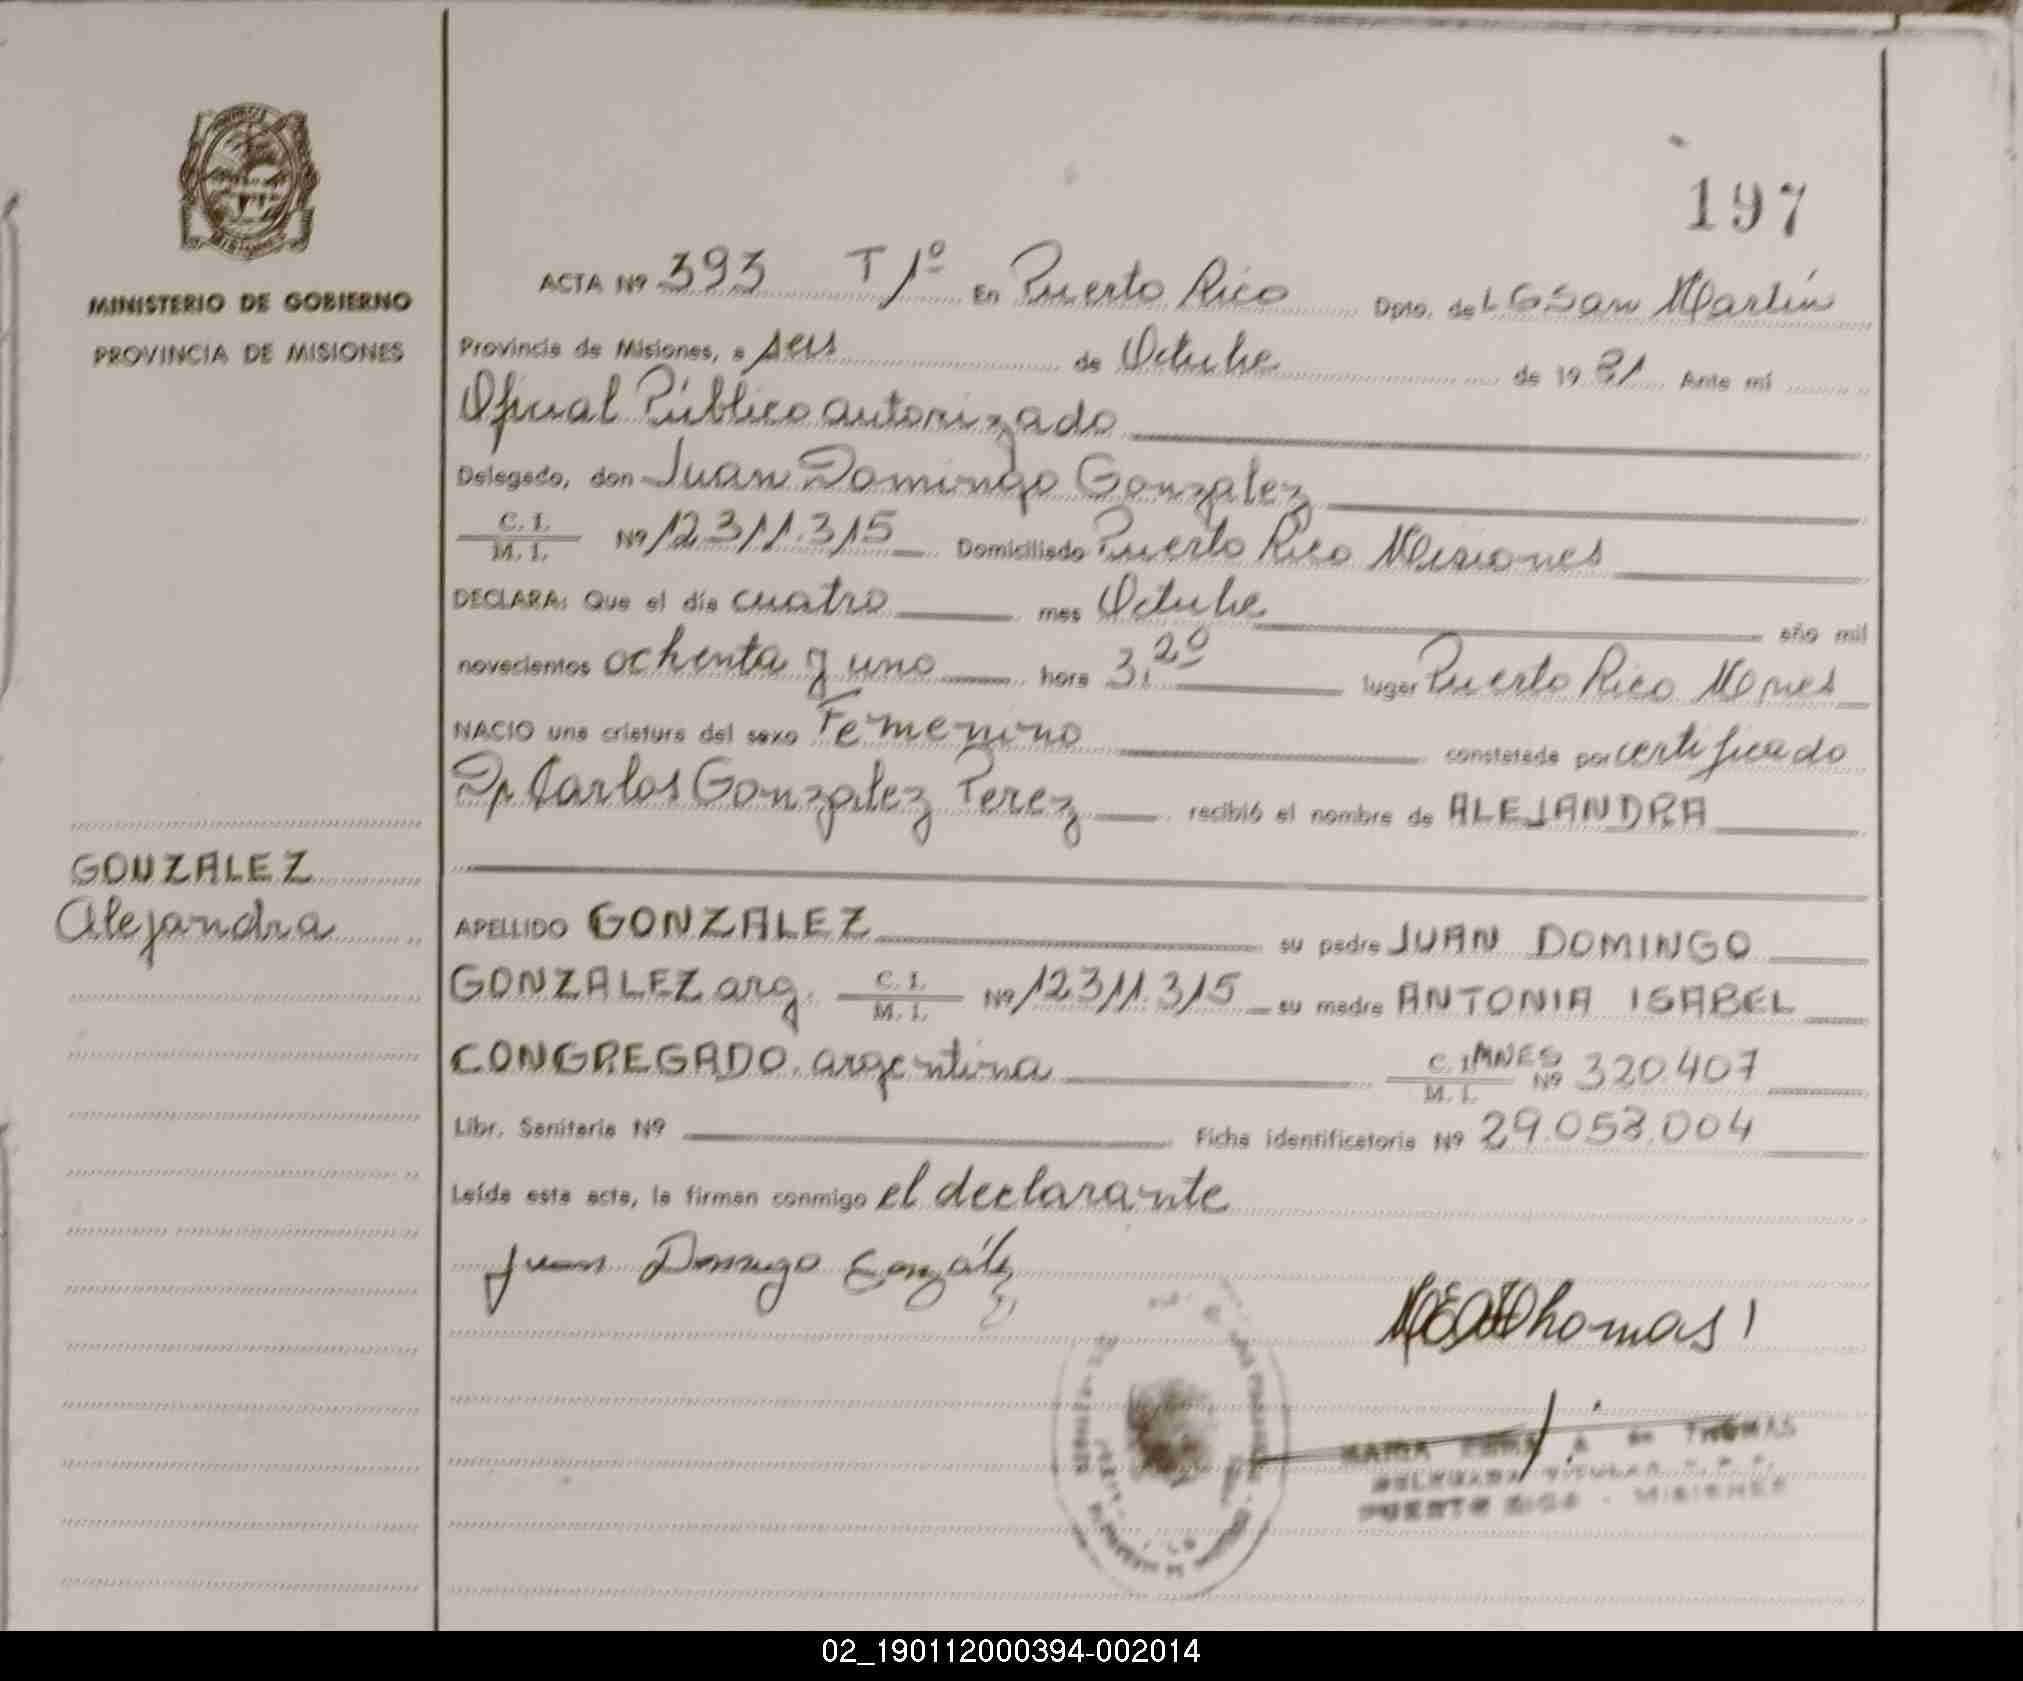 197
MINISTERIO DE GOBIERNO
PROVINCIA DE MISIONES
ACTA Nº 393 T 1º En Puerto Rico Dpto. de L G San Martín
Provincia de Misiones, a seis de Octubre de 19 81 Ante mí
Oficial Público autorizado
Delegado, don Juan Domingo Gonzalez
C. I.
M. I. Nº 12311.315 Domiciliado Puerto Rico Misiones
DECLARA: Que el día cuatro mes Octubre año mil
novecientos ochenta y uno hora 3,20 lugar Puerto Rico Mnes
NACIO una criatura del sexo Femenino constatada por certificado
Dr Carlos Gonzalez Perez recibió el nombre de ALEJANDRA
GONZALEZ
Alejandra
APELLIDO GONZALEZ su padre JUAN DOMINGO
GONZALEZ arg. C. I. M. I. Nº 12311.315 su madre ANTONIA ISABEL
CONGREGADO. argentina C. I. MNES M. I. Nº 320.407
Libr. Sanitaria Nº Ficha identificatoria Nº 29.058.004
Leída esta acta, la firman conmigo el declarante
Juan Domingo González
Thomas
MARIA A de THOMAS
DELEGADA TITULAR
PUERTO RICO - MISIONES
02_190112000394-002014